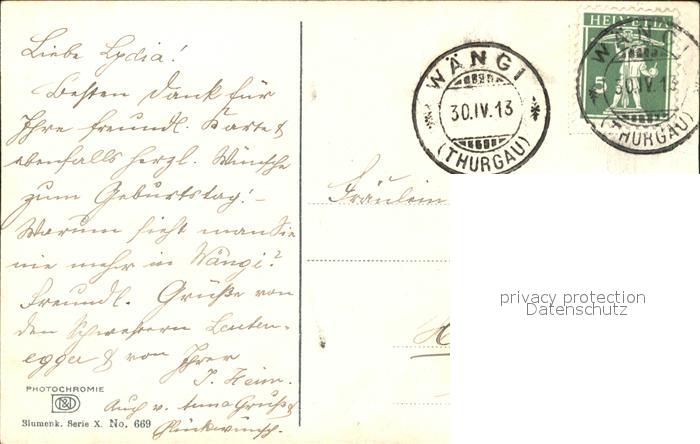 Liebe Lydia!
Besten Dank für
Ihre freundl. Karte &
ebenfalls herzl. Wünsche
zum Geburtstag! –
Warum sieht man Sie
nie mehr in Wängi?
Freundl. Grüße von
den Schwestern Leuten-
egger & von Ihrer
J. Heim.
Auch v. Anna Gruß &
Glückwunsch.
PHOTOCHROMIE
Blumenk. Serie X. No. 669
WÄNGI
30.IV.13
(THURGAU)
HELVETIA
5
WÄNGI
30.IV.13
(THURGAU)
Fräulein
privacy protection
Datenschutz